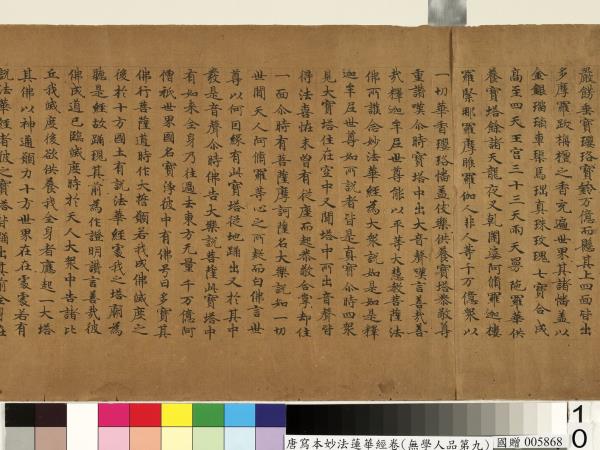 嚴飾垂寶瓔珞寶鈴万億而懸其上四面皆出
多摩羅跋栴檀之香充遍世界其諸幡盖以
金銀瑠璃車璖馬瑙真珠玫瑰七寶合成
高至四天王宮三十三天雨天曼陁羅華供
養寶塔餘諸天龍夜叉乹闥婆阿脩羅迦樓
羅緊那羅摩睺羅伽人非人等千万億衆以
一切華香瓔珞幡盖伎樂供養寶塔恭敬尊
重讃嘆尒時寶塔中出大音聲嘆言善哉善
哉釋迦牟尼世尊能以平等大慧教菩薩法
佛所護念妙法華經為大衆說如是如是釋
迦牟尼世尊如所說者皆是真實尒時四衆
見大寶塔住在空中又聞塔中所出音聲皆
得法喜怪未曾有從座而起恭敬合掌却住
一面尒時有菩薩摩訶薩名大樂說知一切
世間天人阿脩羅等心之所疑而白佛言世
尊以何因緣有此寶塔從地踊出又於其中
發是音聲尒時佛告大樂說菩薩此寶塔中
有如来全身乃往過去東方无量千万億阿
僧祇世界國名寶淨彼中有佛号曰多寶其
佛行菩薩道時作大誓願若我成佛滅度之
後於十方國土有說法華經處我之塔廟為
聽是經故踊現其前為作證明讃言善哉彼
佛成道已臨滅度時於天人大衆中告諸比
丘我滅度後欲供養我全身者應起一大塔
其佛以神通願力十方世界在在處處若有
說法華經者彼之寶塔皆踊出其前全身在
唐寫本妙法蓮華經卷(無學人品第九)
國贈 005868
10